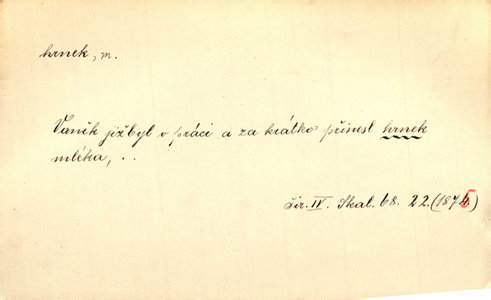 hrnek, m.
Vaněk již byl v práci a za krátko přinesl hrnek
mléka, . .
Jir. IV. Skal. 68. 22. (1875)